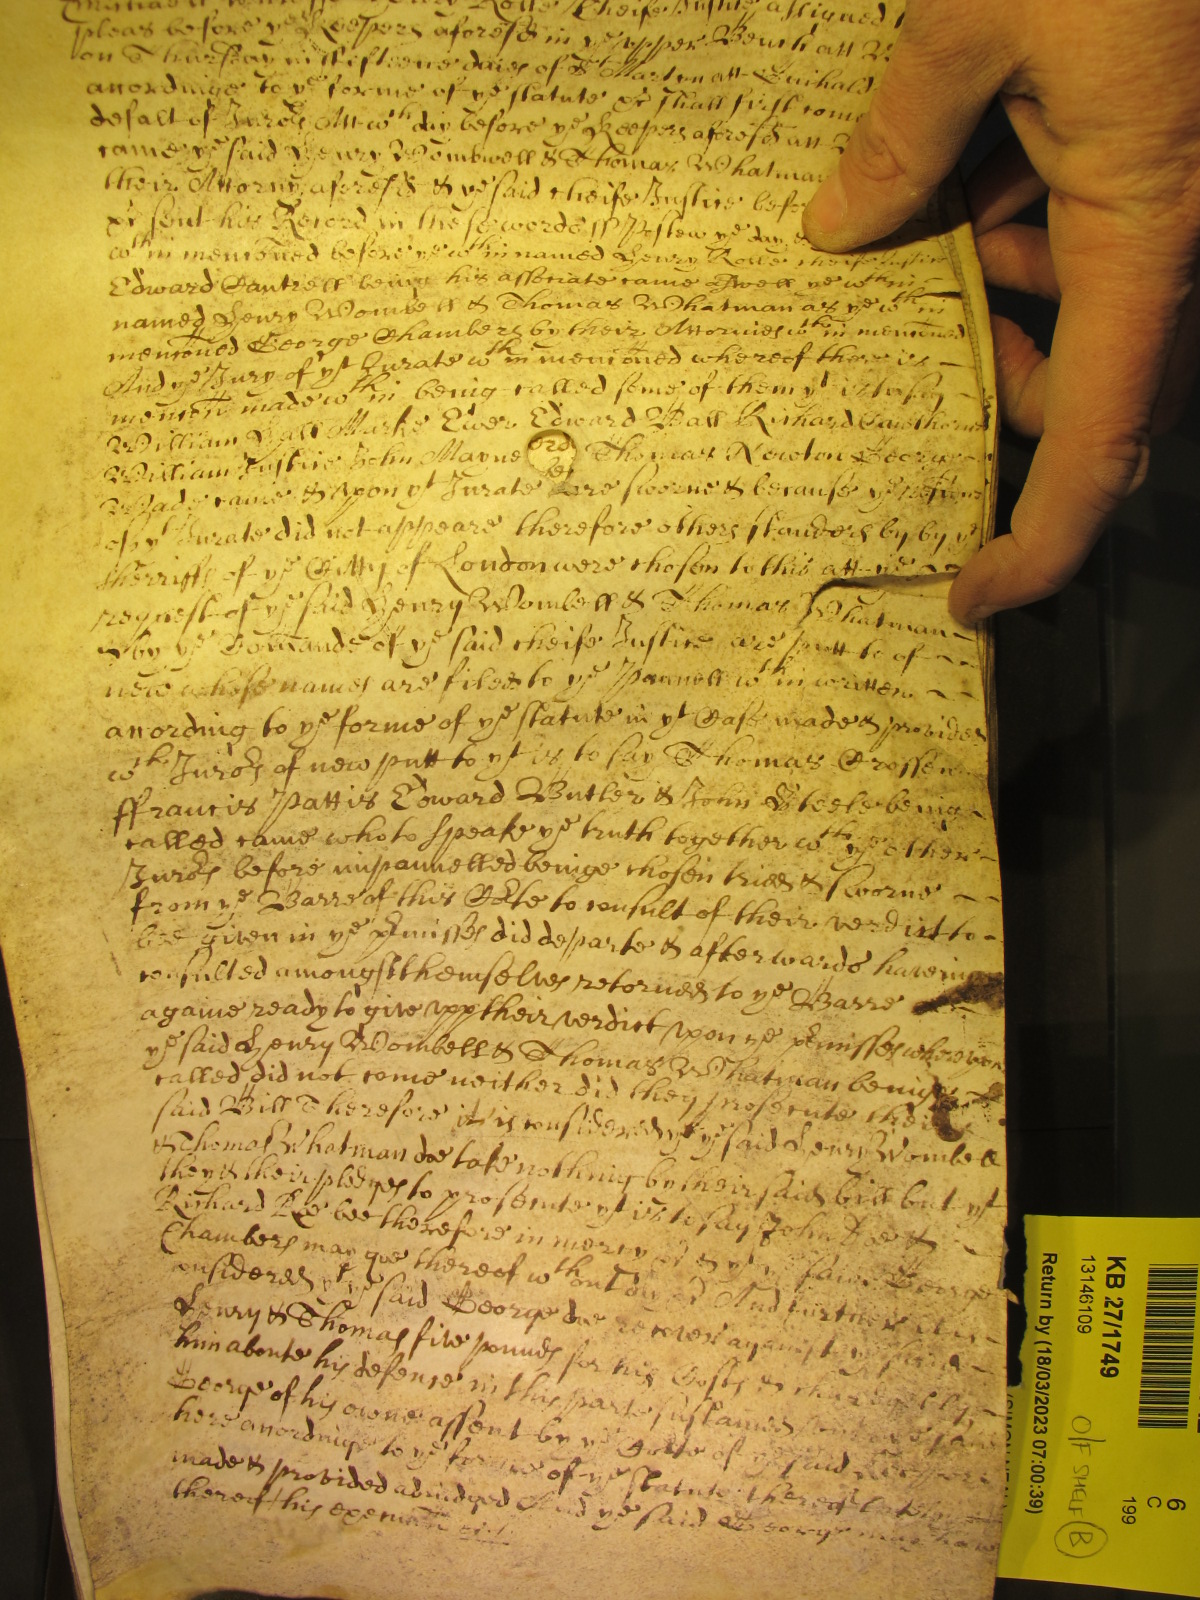 Henry Rolle Cheife Justice assigned
pleas before ye Keepers aforesd in ye upper Bench att
on Thursday in fifteene daies of St Martin att Guihald
accordinge to ye forme of ye statute &c shall first come
defalt of Jurors Att wch day before ye Keepers aforesd att
came ye said Henry Wombwell & Thomas Whatman
their Attorny aforesd & ye said cheife Justice before
sent his Record in these words ss Postew ye day &
wthin mencõned before ye wthin named Henry Rolle cheife Justice
Edward Cantrell being his associate came aswell ye wthin
named Henry Wombell & Thomas Whatman as ye wthin
mencõned George Chambers by their Attornies wthin mencõned
And ye Jury of yt Jurate wthin mencõned whereof there is
mencõn made wthin beinig called some of them yt is to say
William Hall Marke Ewer Edward Ball Richard Cawthorne
William Justice John Mayne ord Thomas Newton George
Wade came & upon yt Jurate are sworne & because ye residue
of yt Jurate did not appeare therefore others standers by by ye
sherriffs of ye Citty of London were chosen to this att ye
request of ye said Henry Wombell & Thomas Whatman
& by ye Comande of ye said cheife Justice are putt to of
new whose names are filed to ye Pannell wthin written
accordinge to ye forme of ye statute in yt Case made & provided
wch Jurors of new putt to yt is to say Thomas Crosse
ffrancis Pattis Edward Butler & John Steele being
called came who to speake ye truth together wth ye other
Jurors before impannelled beinge chosen tried & sworne
from ye Barre of this Co͠te to consult of their verdict to
bee given in ye p͠misses did departe & afterwards haveing
consulted amongst themselves retorned to ye Barre
againe ready to give upp their verdict upon ye p͠misses whereupon
ye said Henry Wombell & Thomas Whatman beinige
called did not come neither did they prosecute their
said Bill Therefore it is considered yt ye said Henry Wombell
& Thomas Whatman doe take nothing by their said bill but yt
they & their pledges to prosecute yt is to say John Doe &
Richard Roe bee therefore in mercy &c & yt ye said George
Chambers may goe thereof wthout day &c And further it is
considered yt ye said George doe recover against ye said
Henry & Thomas five pounds for his Costs & charges by
him aboute his defence in this parte sustained
George of his owne assent by ye Co͠te of ye said Keepers
here accordinge to ye forme of ye statute thereof lately
made & provided adiudged And ye said George may have
thereof his execucõn &c
KB 27/1749
13146109
Return by (18/03/2023 07:00:39)
6
C
199
O/F SHELF B